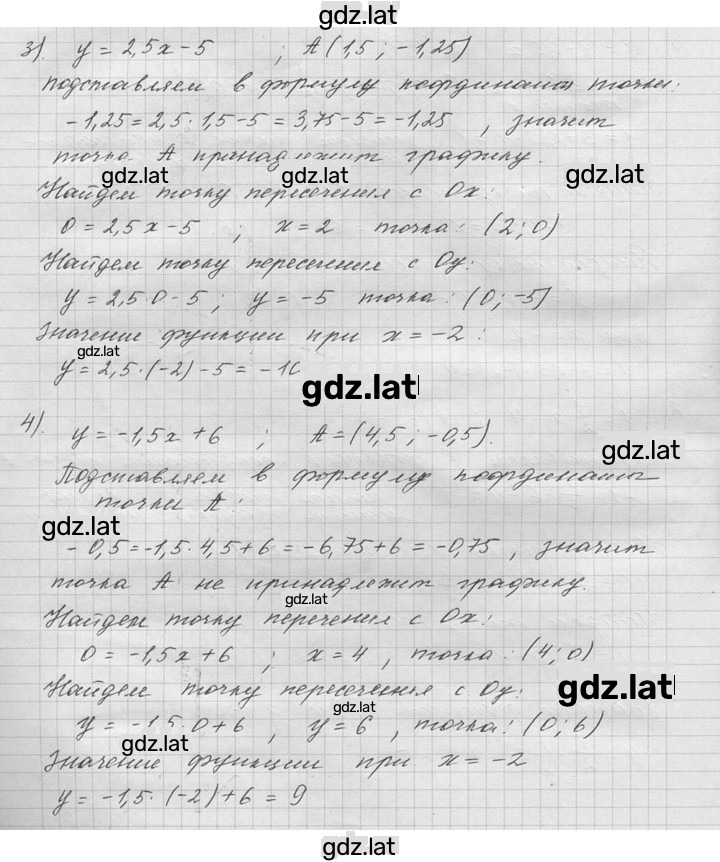 gdz.lat
3). y = 2,5x - 5 ; A(1,5 ; -1,25)
Подставляем в формулу координаты точки:
-1,25 = 2,5 · 1,5 - 5 = 3,75 - 5 = -1,25 , значит
точка А принадлежит графику.
gdz.lat gdz.lat gdz.lat
Найдем точку пересечения с Ox:
0 = 2,5x - 5 ; x = 2 точка: (2; 0)
Найдем точку пересечения с Oy:
y = 2,5·0 - 5 ; y = -5 точка: (0; -5)
Значение функции при x = -2 :
gdz.lat
y = 2,5·(-2) - 5 = -10
gdz.lat
4). y = -1,5x + 6 ; A = (4,5 ; -0,5).
gdz.lat
Подставляем в формулу координаты
точки А:
gdz.lat
-0,5 = -1,5 · 4,5 + 6 = -6,75 + 6 = -0,75 , значит
точка А не принадлежит графику.
gdz.lat
Найдем точку перечения с Ox:
0 = -1,5x + 6 ; x = 4 , точка: (4; 0)
Найдем точку пересечения с Oy:
gdz.lat
gdz.lat
y = -1,5·0 + 6 , y = 6 , точка: (0; 6)
gdz.lat
Значение функции при x = -2
y = -1,5·(-2) + 6 = 9
gdz.lat